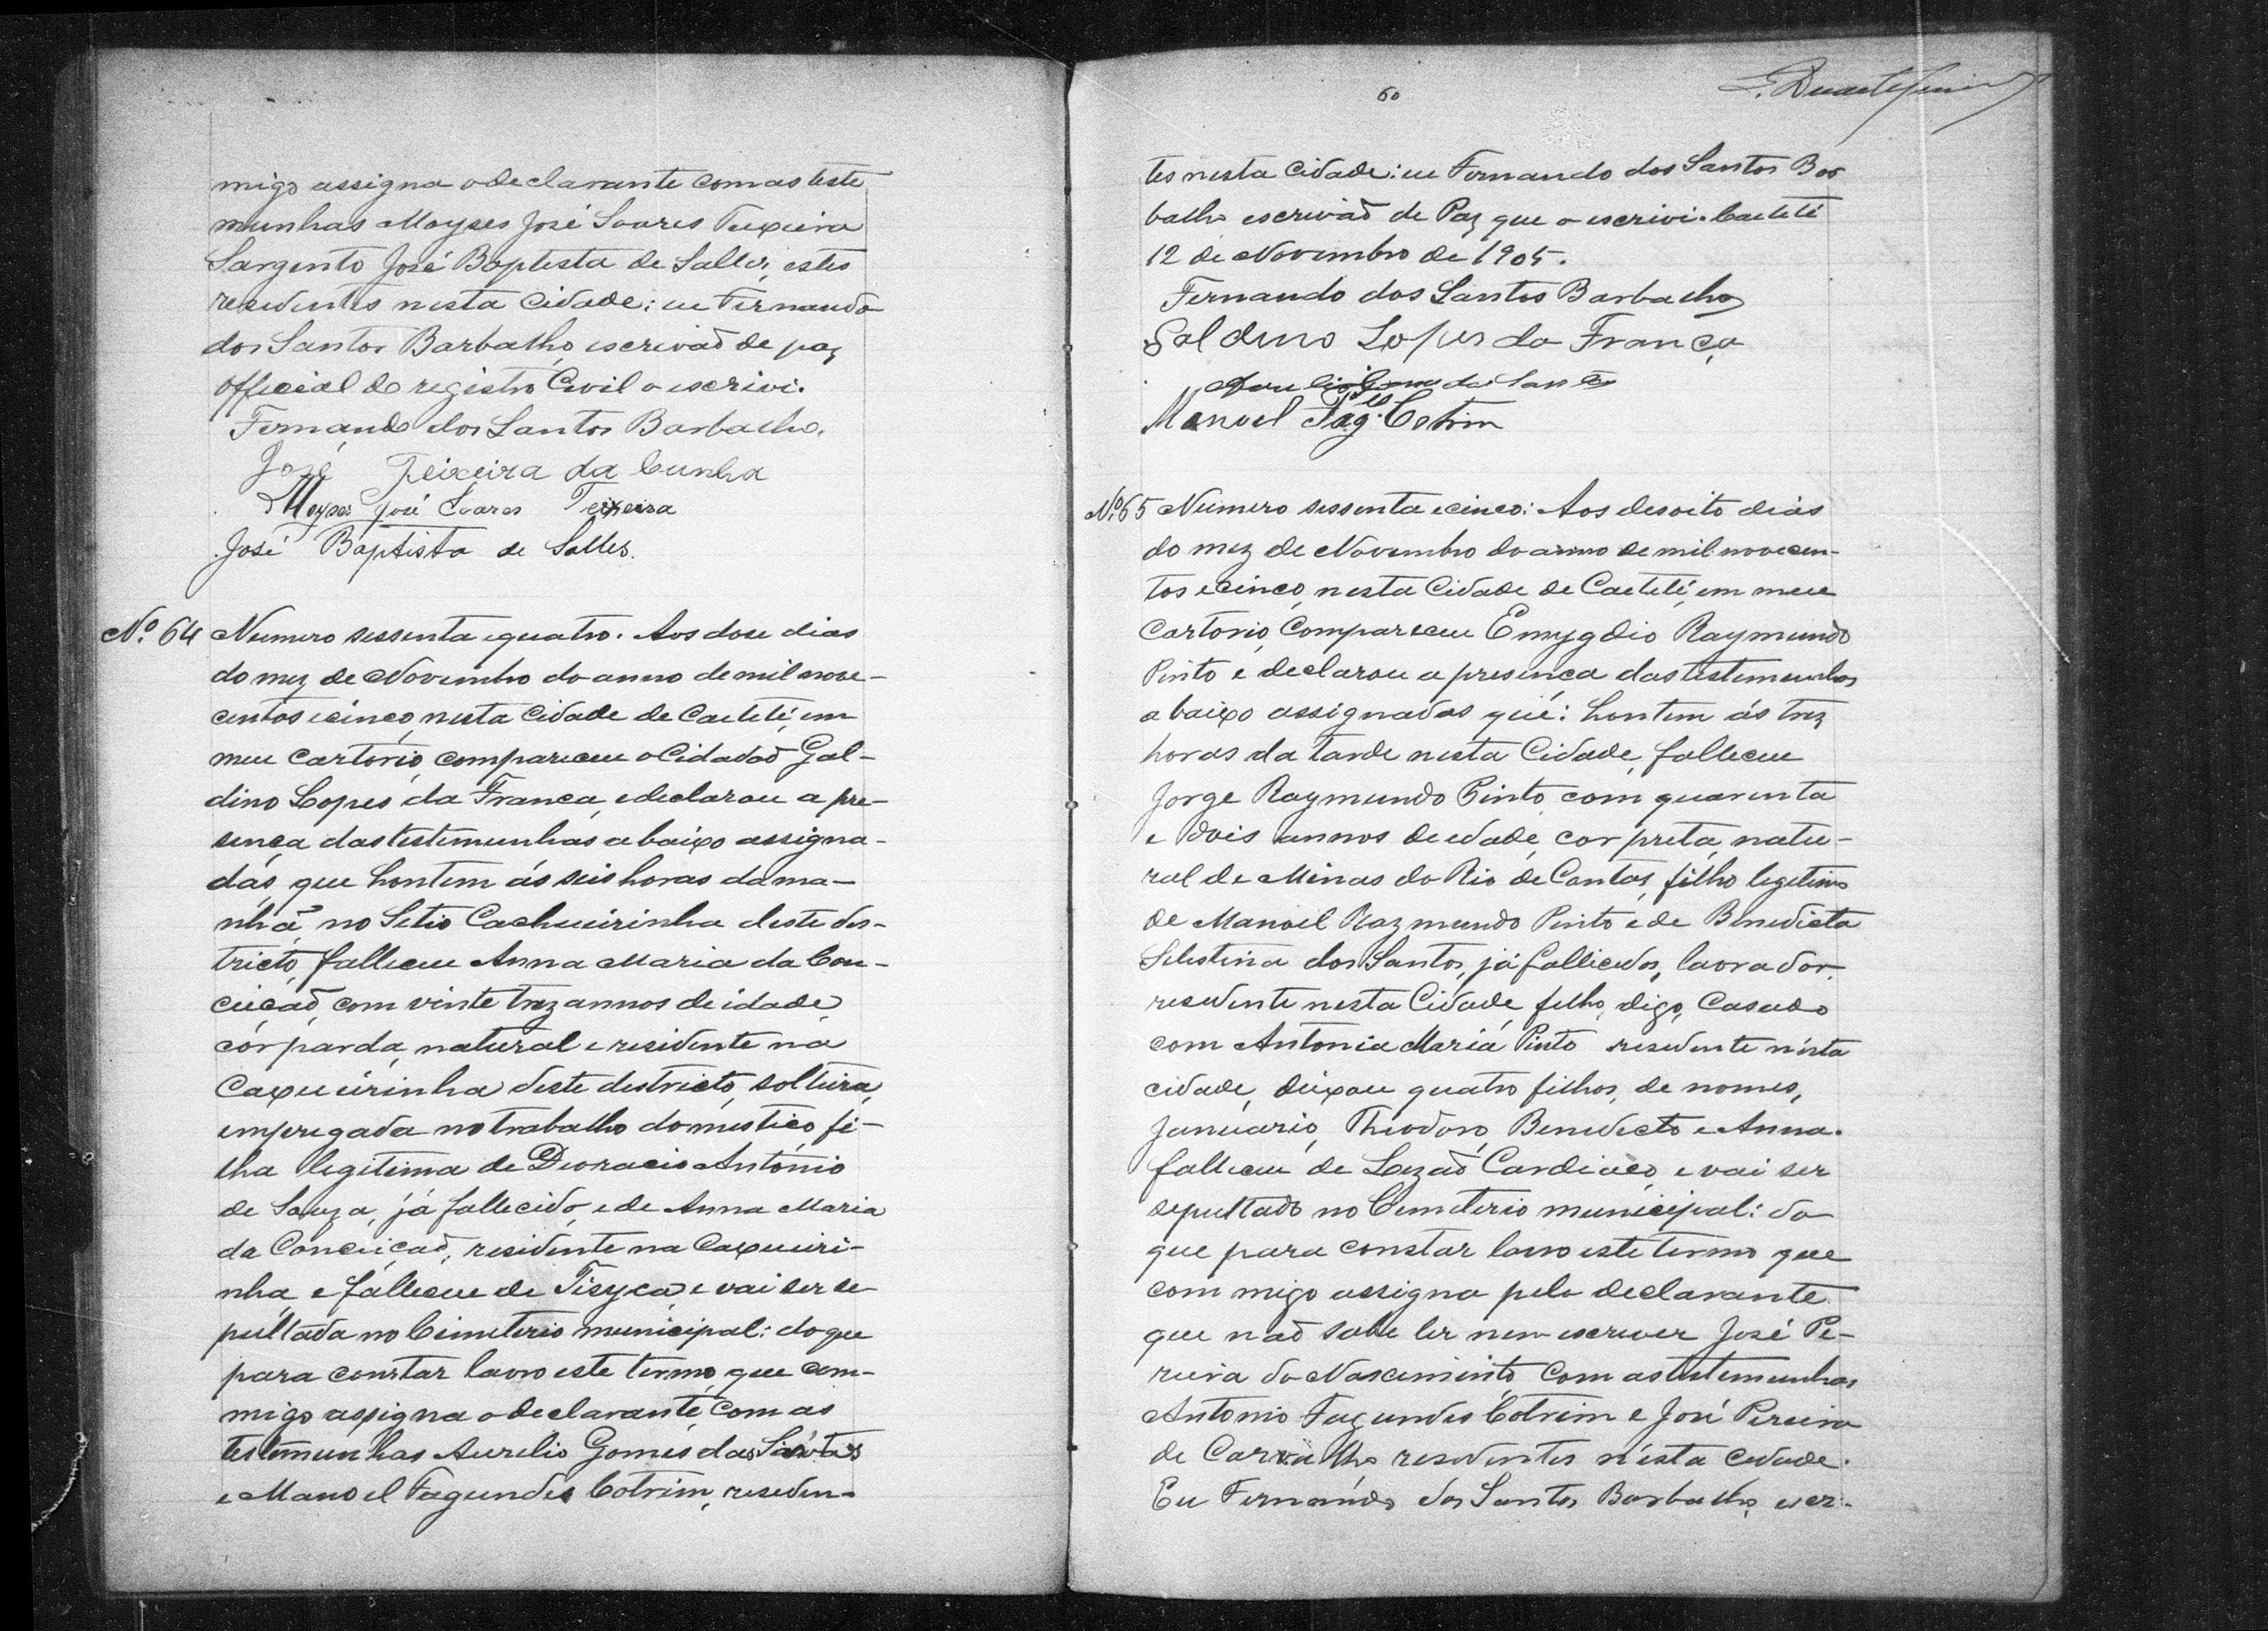 migo assigna o declarante com as teste
munhas Moyses José Soares Teixeira
Sargento José Baptista de Salles, estes
residentes nesta Cidade: eu Fernando
dos Santos Barbalho, escrivaõ de paz
official do registro Civil o escrivi.
Fernando dos Santos Barbalho.
José Teixeira da Cunha
Moyses José Soares Teixeira
José Baptista de Salles.
Nº 64 Numero sessenta e quatro. Aos dose dias
do mez de Novembro do anno de mil nove-
centos e cinco, nesta Cidade de Caeteté, em
meu Cartorio, compareceu o Cidadaõ Gal-
dino Lopes da Franca, e declarou a pre-
senca das testemunhas abaixo assigna-
das, que hontem ás seis horas da ma-
nhã, no Setio Cachueirinha deste des-
tricto, falleceu Anna Maria da Con-
ceicaõ, com vinte trez annos de idade,
côr parda, natural e residente na
Caxueirinha deste destricto, solteira,
empregada no trabalho domestico, fi-
lha legitima de Deoracio Antonio
de Souza, já fallecido, e de Anna Maria
da Conceicaõ, residente na Caxueiri-
nha, e falleceu de Tisyca, e vai ser se-
pultada no Cimiterio municipal: do que
para constar lavro este termo, que com-
migo assigna o declarante, com as
testemunhas Aurelio Gomes dos Santos
e Manoel Fagundes Cotrim, residen-
60
tes nesta Cidade: eu Fernando dos Santos Bar
balho escrivaõ de Paz que o escrivi. Caeteté
12 de Novembro de 1905.
Fernando dos Santos Barbalho
Galdino Lopes da França
Aurelio Gomes dos Santos
Manoel Fag.es Cotrim
Nº 65 Numero sessenta e cinco: Aos desoito dias
do mez de Novembro do anno de mil novecen-
tos e cinco, nesta Cidade de Caeteté, em meu
Cartorio, Compareceu Emygdio Raymundo
Pinto e declarou a presenca das testemunhas
abaixo assignadas que: hontem ás trez
horas da tarde nesta Cidade, falleceu
Jorge Raymundo Pinto, com quarenta
e dois annos de edade, cor preta, natu-
ral de Minas do Rio de Contas, filho legitimo
de Manoel Raymundo Pinto e de Benedicta
Selestina dos Santos, já fallecidos, lavrador,
residente nesta Cidade, filho, digo, Casado
com Antonia Maria Pinto residente nesta
cidade, deixou quatro filhos, de nomes,
Januario, Theodoro, Benedicto e Anna.
falleceu de Lezaõ Cardiaca, e vai ser
sepultado no Cemiterio municipal: do
que para constar lavro este termo que
com migo assigna pelo declarante
que naõ sabe ler nem escrever José Pe-
reira do Nascimento, com as testemunhas
Antonio Fagundes Cotrim e José Pereira
de Carvalho residentes nesta cidade.
Eu Fernando dos Santos Barbalho, escri-